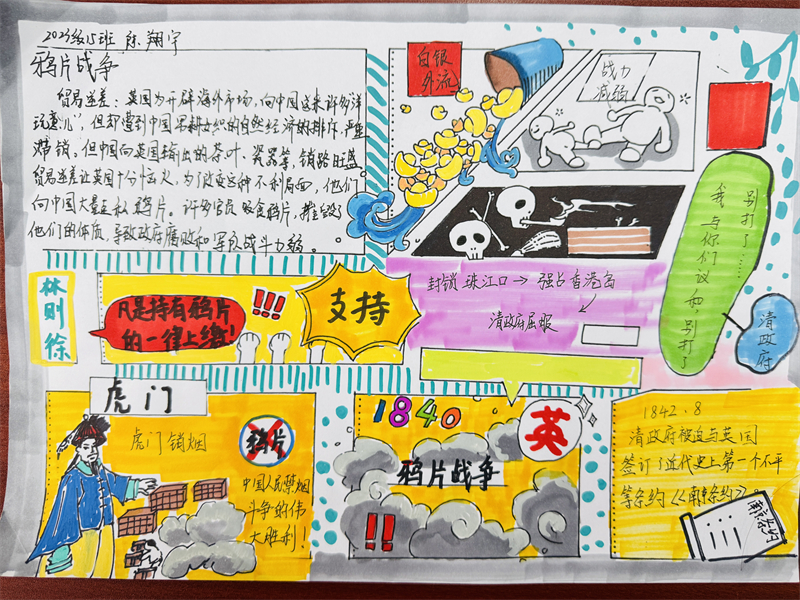 2023级15班 陈翔宇
鸦片战争
贸易逆差：英国为开辟海外市场，向中国运来许多洋
玩意儿，但却遭到中国男耕女织的自然经济的排斥，严重
滞销。但中国向英国输出的茶叶、瓷器等，销路旺盛
贸易逆差让英国十分恼火，为了改变这种不利局面，他们
向中国大量走私鸦片。许多官员吸食鸦片，摧毁了
他们的体质，导致政府腐败和军队战斗力弱。
白银
外流
战力
减弱
别打了……
我与你们议和，别打了
清政府
封锁珠江口→强占香港岛
清政府屈服
林则徐
凡是持有鸦片
的一律上缴！
!!!
支持
虎门
虎门销烟
鸦片
中国人民禁烟
斗争的伟
大胜利！
1840
英
鸦片战争
!!
1842.8
清政府被迫与英国
签订了近代史上第一个不平
等条约《南京条约》
南京条约